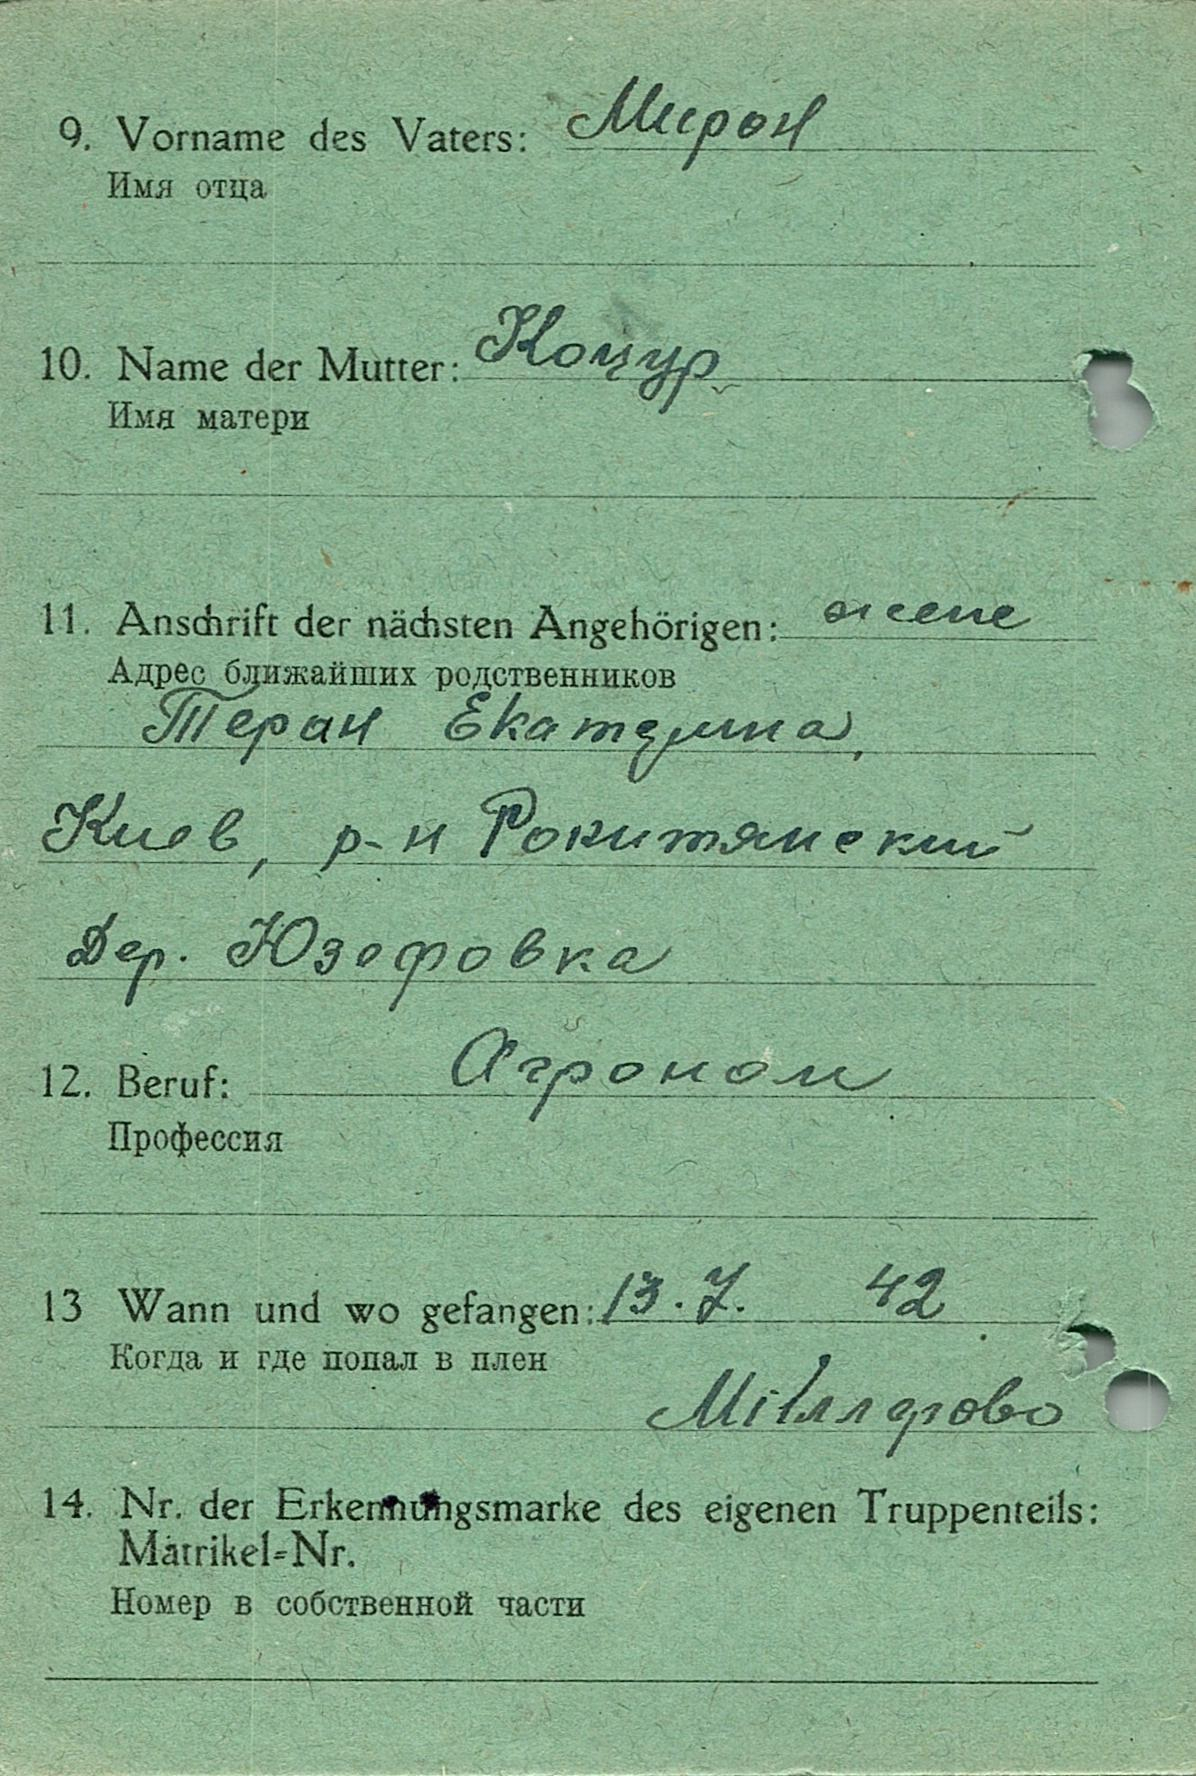 9. Vorname des Vaters: Мирон
Имя отца
10. Name der Mutter: Коцур
Имя матери
11. Anschrift der nächsten Angehörigen: жене
Адрес ближайших родственников
Теран Екатерина,
Киев, р-н Рокитянский
Дер. Юзефовка
12. Beruf: Агроном
Профессия
13 Wann und wo gefangen: 13.7. 42
Когда и где попал в плен
14. Nr. der Erkennungsmarke des eigenen Truppenteils:
Matrikel-Nr.
Номер в собственной части